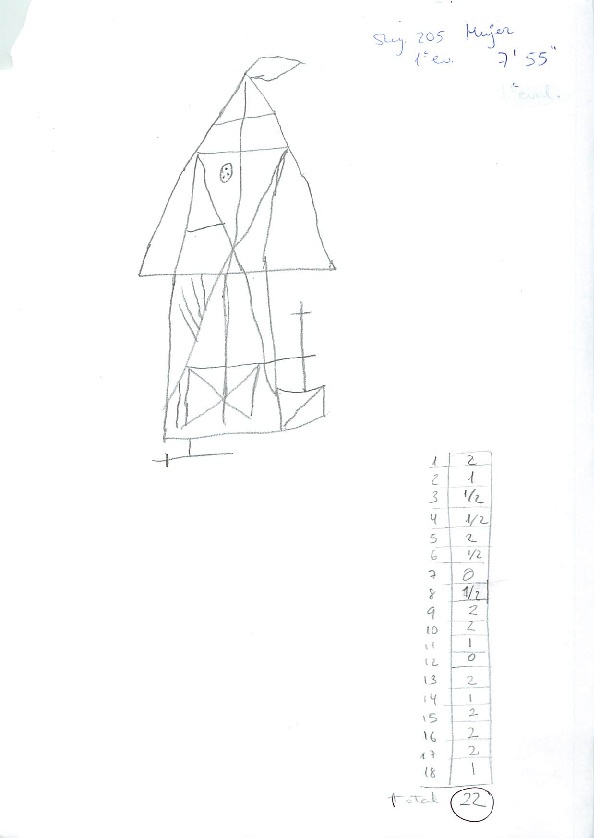 205 Mujer
1ª ev. 7' 55"
1ª eval.
1 2
2 1
3 1/2
4 1/2
5 2
6 1/2
7 0
8 1/2
9 2
10 2
11 1
12 0
13 2
14 1
15 2
16 2
17 2
18 1
total 22